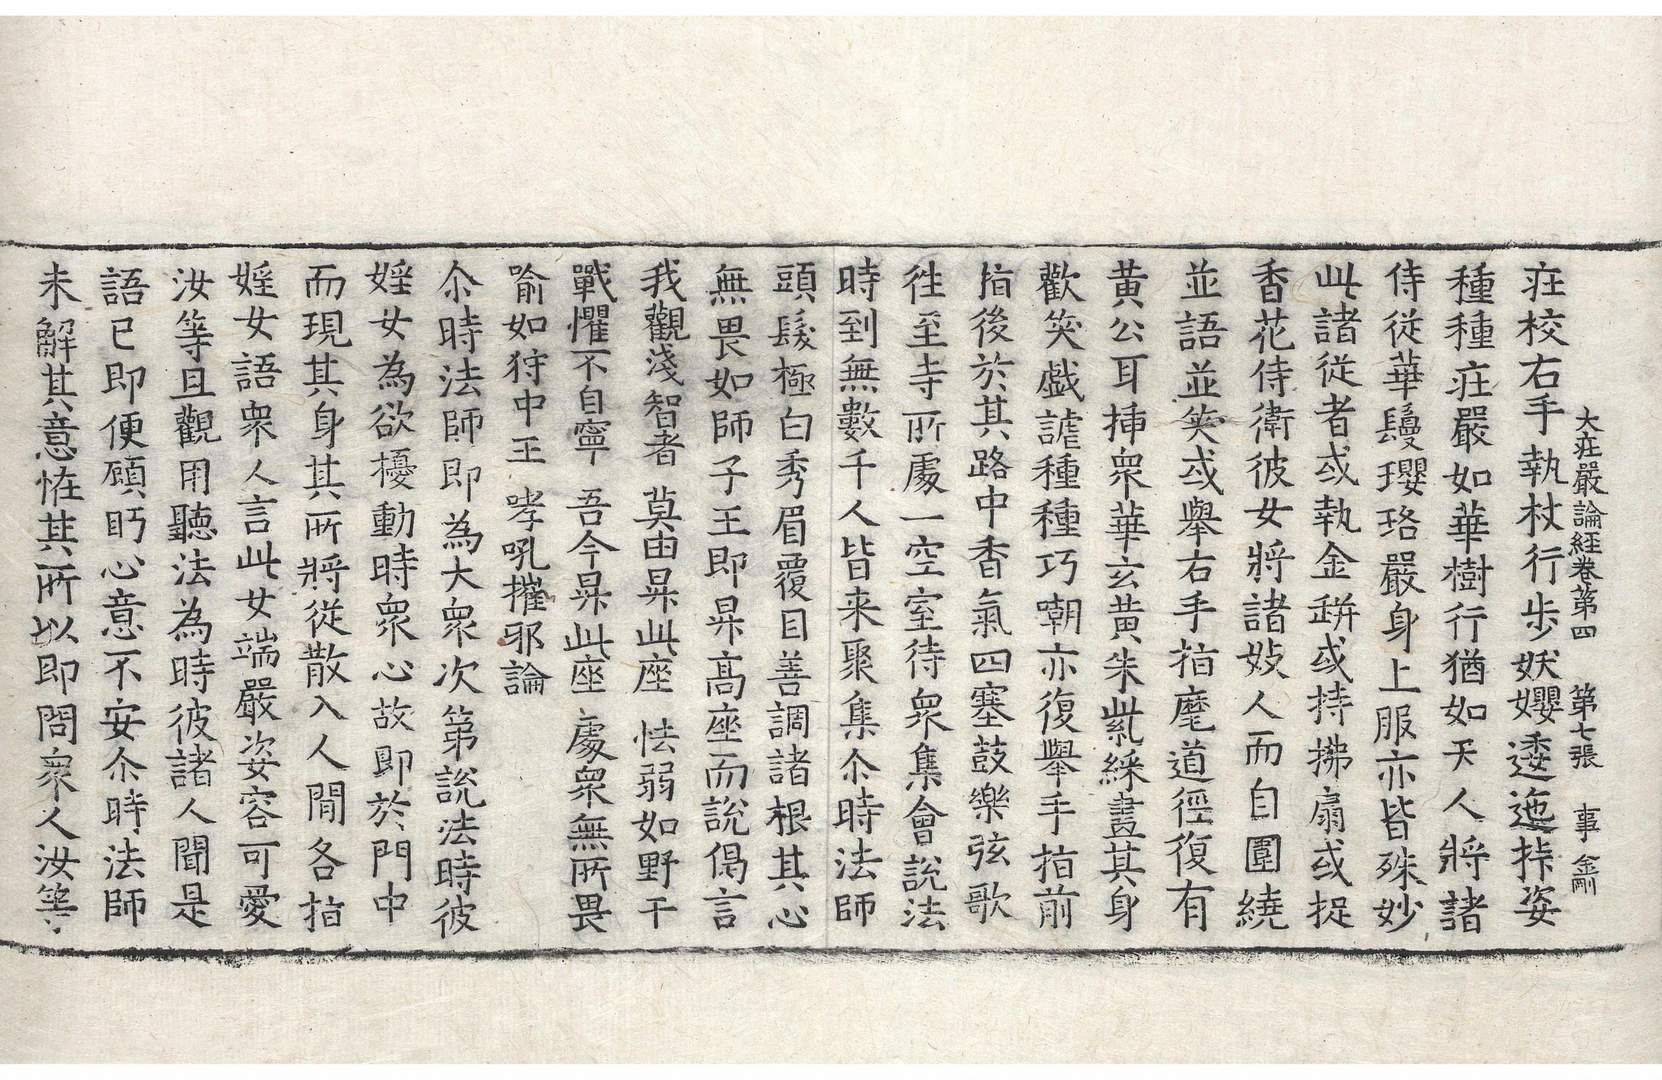 大庄嚴論経卷第四 第七張 事 金剛
庄校右手執杖行步妖孆逶迤挊姿
種種庄嚴如華樹行猶如天人將諸
侍従華鬘瓔珞嚴身上服亦皆殊妙
此諸従者或執金缾或持拂扇或捉
香花侍衛彼女將諸妓人而自圍繞
並語並笑或舉右手指麾道徑復有
黃公耳揷衆華玄黃朱紫綵畫其身
歡笑戯謔種種巧嘲亦復舉手指前
指後於其路中香氣四塞鼓樂弦歌
徃至寺所處一空室待衆集會說法
時到無數千人皆来聚集尒時法師
頭髮極白秀眉覆目善調諸根其心
無畏如師子王即昇高座而說偈言
我觀淺智者 莫由昇此座 怯弱如野干
戰懼不自寧 吾今昇此座 處衆無所畏
喻如狩中王 哮吼摧邪論
尒時法師即為大衆次第說法時彼
婬女為欲擾動時衆心故即於門中
而現其身其所將従散入人閒各指
婬女語衆人言此女端嚴姿容可愛
汝等且觀用聽法為時彼諸人聞是
語已即便顧眄心意不安尒時法師
未解其意恠其所以即問衆人汝等